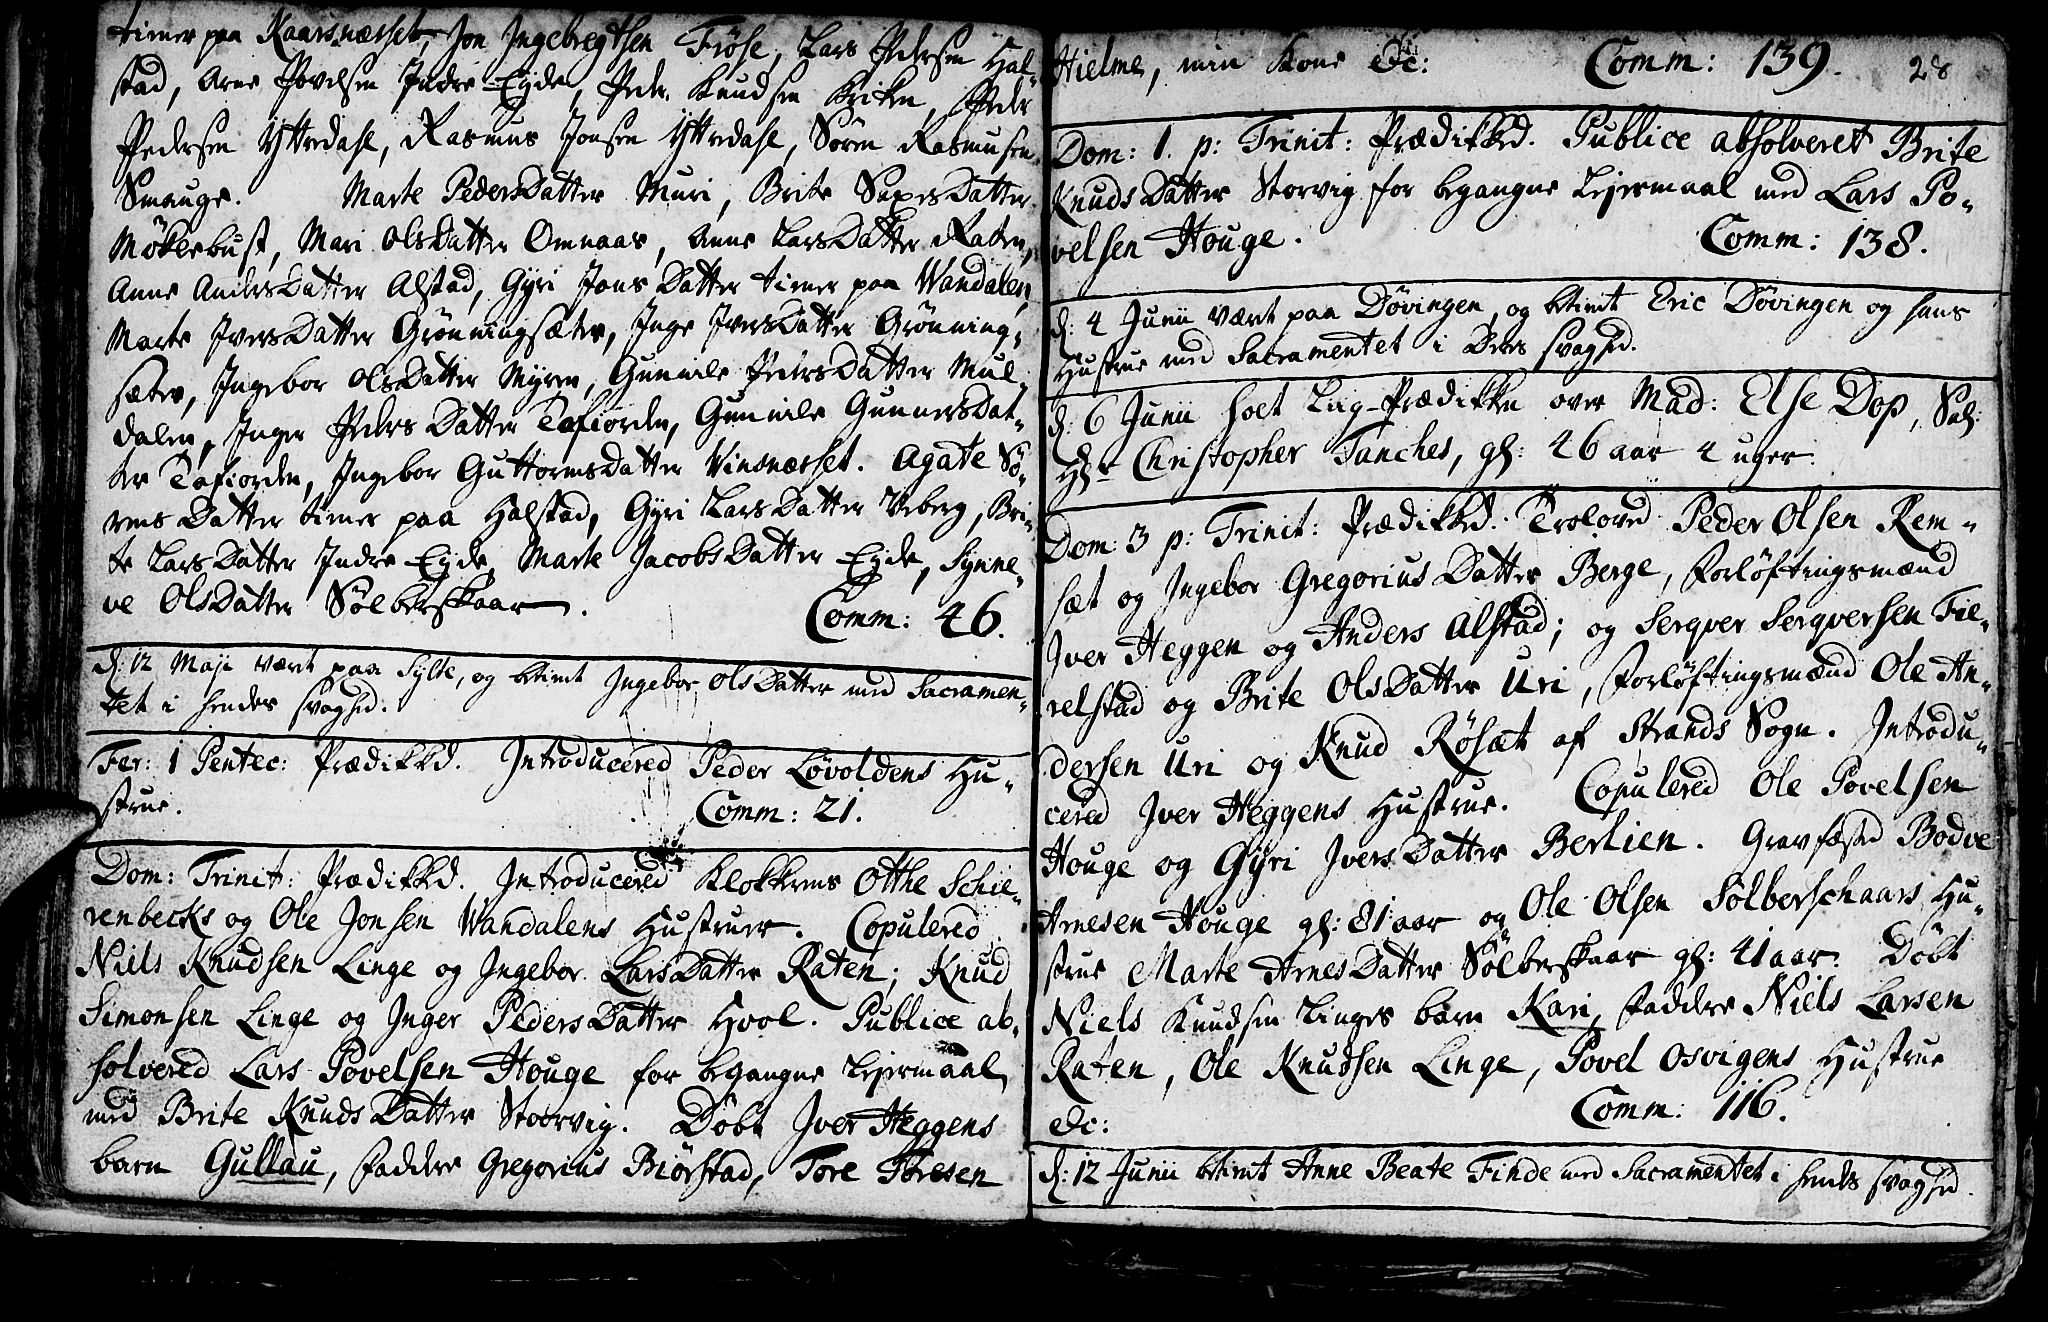 tiener paa Kaarsnæsset, Jon Ingebregtsen Fiöse, Lars Pedersen Hal-
stad, Arne Povelsen Indre-Eyde, Peder Knudsen Kriken, Peder
Pedersen Yttredahl, Rasmus Jonsen Yttredahl, Sören Rasmusen
Smauge. Marte PedersDatter Muri, Brite SapesDatter
Möklebust, Mari OlsDatter Omnaas, Anne LarsDatter Raten,
Anne AndersDatter Alstad, Gÿri JonsDatter tiener paa Wandalen,
Marte IversDatter Grönningsæter, Inge IversDatter Grönning-
sæter, Ingebor OlsDatter Myren, Gunnile PedersDatter Mul-
dalen, Inger PedersDatter Tafiorden, Gunnile GunnersDat-
ter Tafiorden, Ingebor GuttormsDatter Vinsnæsset. Agate Sö-
rensDatter tiener paa Halstad, Gÿri LarsDatter Veberg, Bri-
te LarsDatter Indre-Eyde, Marte JacobsDatter Eyde, Synne-
ve OlsDatter Sölberskaar.
Comm: 46.
d: 12 Maji været paa Sylte, og betient Ingebor OlsDatter med Sacramen-
tet i hendes svaghed.
Fer: 1 Pentec: Prædikked. Introducered Peder Lövoldens Hu-
strue.
Comm: 21.
Dom: Trinit: Prædikked. Introducered Klokkerens Otthe Schie-
renbecks og Ole Jonsen Wandalens Hustruer. Copulered
Niels Knudsen Linge og Ingebor LarsDatter Raten; Knud
Simonsen Linge og Inger PedersDatter Hool. Publice ab-
solvered Lars Povelsen Houge for begangne Leyermaal
med Brite KnudsDatter Stoorvig. Döbt Iver Heggens
barn Gullau, faddere Gregorius Biörstad, Tore Toresen
Hielme, min Kone &c: Comm: 139. 28
Dom: 1. p: Trinit: Prædikked. Publice absolveret Brite
KnudsDatter Storvig for begangne Leyermaal med Lars Po-
velsen Houge.
Comm: 138.
d: 4 Junii været paa Dövingen, og betient Eric Dövingen og hans
Hustrue med Sacramentet i Deres svaghed.
d: 6 Junii holt Liig-Prædikken over Mad: Else Dop, Sal:
Hr Christopher Tanches, gl: 46 aar 4 uger.
Dom: 3 p: Trinit: Prædikked. Troloved Peder Olsen Rem-
sæt og Ingebor GregoriusDatter Berge, Forlöftingsmænd
Iver Heggen og Anders Alstad; og Serqver Serqversen Fie-
relstad og Brite OlsDatter Uri, Forlöftingsmænd Ole An-
dersen Uri og Knud Rösæt af Strands Sogn. Introdu-
cered Iver Heggens Hustrue. Copulered Ole Povelsen
Houge og Gÿri IversDatter Berlien. Gravfæsted Bodve
Arnesen Houge gl: 81 aar og Ole Olsen Sölberschaars Hu-
strue Marte ArnesDatter Sölberskaar gl: 41 aar. Döbt
Niels Knudsen Linges barn Kari, faddere Niels Larsen
Raten, Ole Knudsen Linge, Povel Osvigens Hustrue
&c:
Comm: 116.
d: 12 Junii betient Anne Beate Finde med Sacramentet i hendes svaghed.